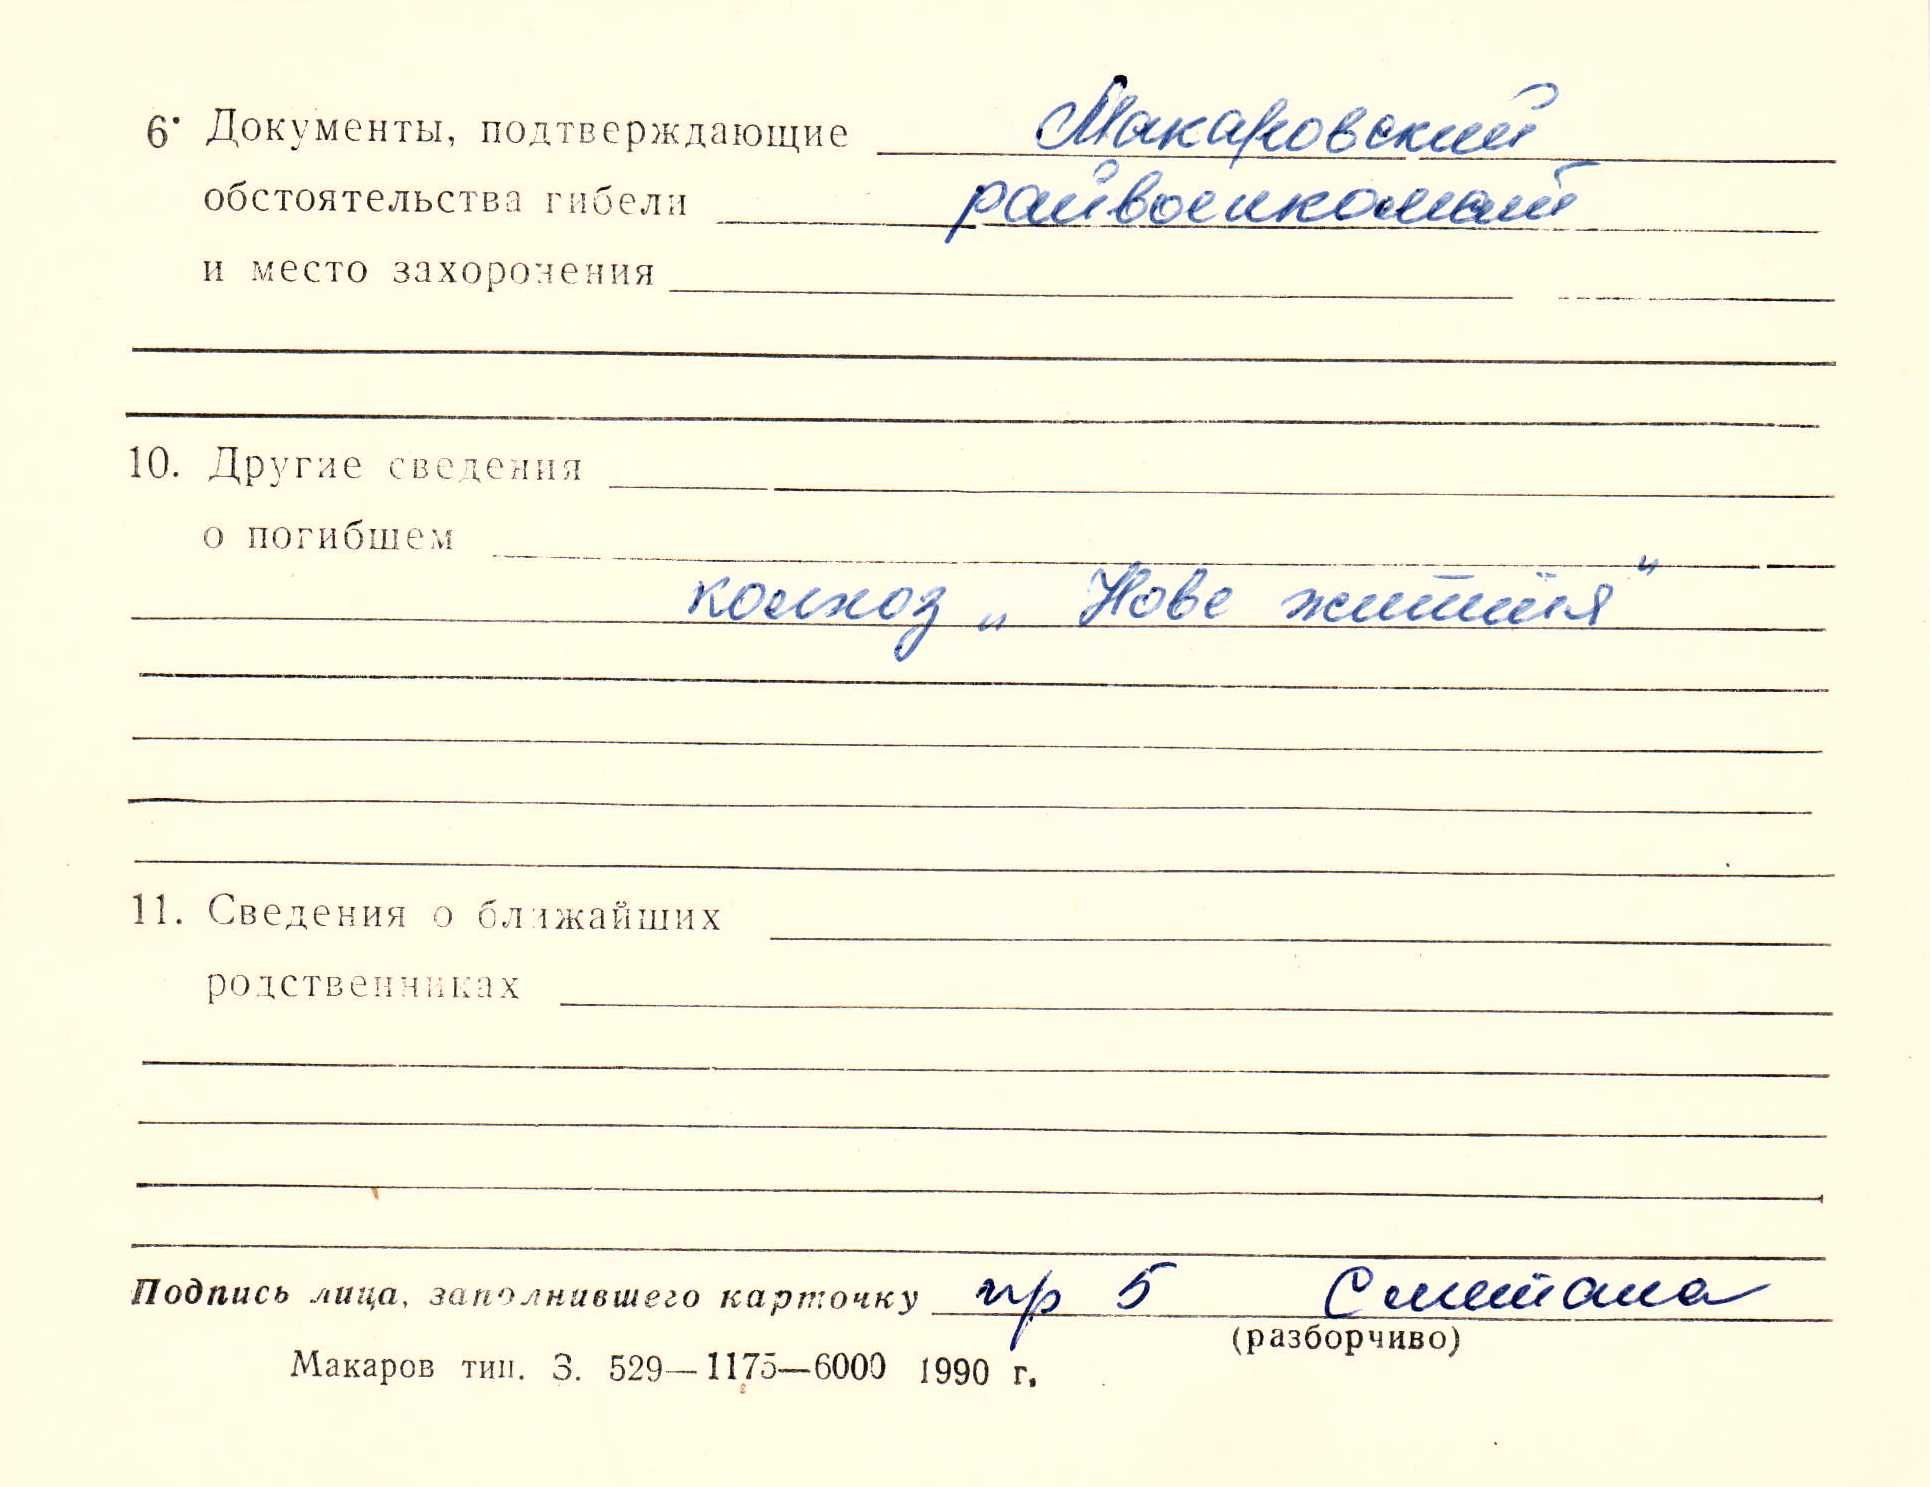 6. Документы, подтверждающие Макаровский
обстоятельства гибели райвоенкомат
и место захоронения
10. Другие сведения
о погибшем
колхоз „Нове життя“
11. Сведения о ближайших
родственниках
Подпись лица, заполнившего карточку пр 5 Сметана
(разборчиво)
Макаров тип. З. 529—1175—6000 1990 г.